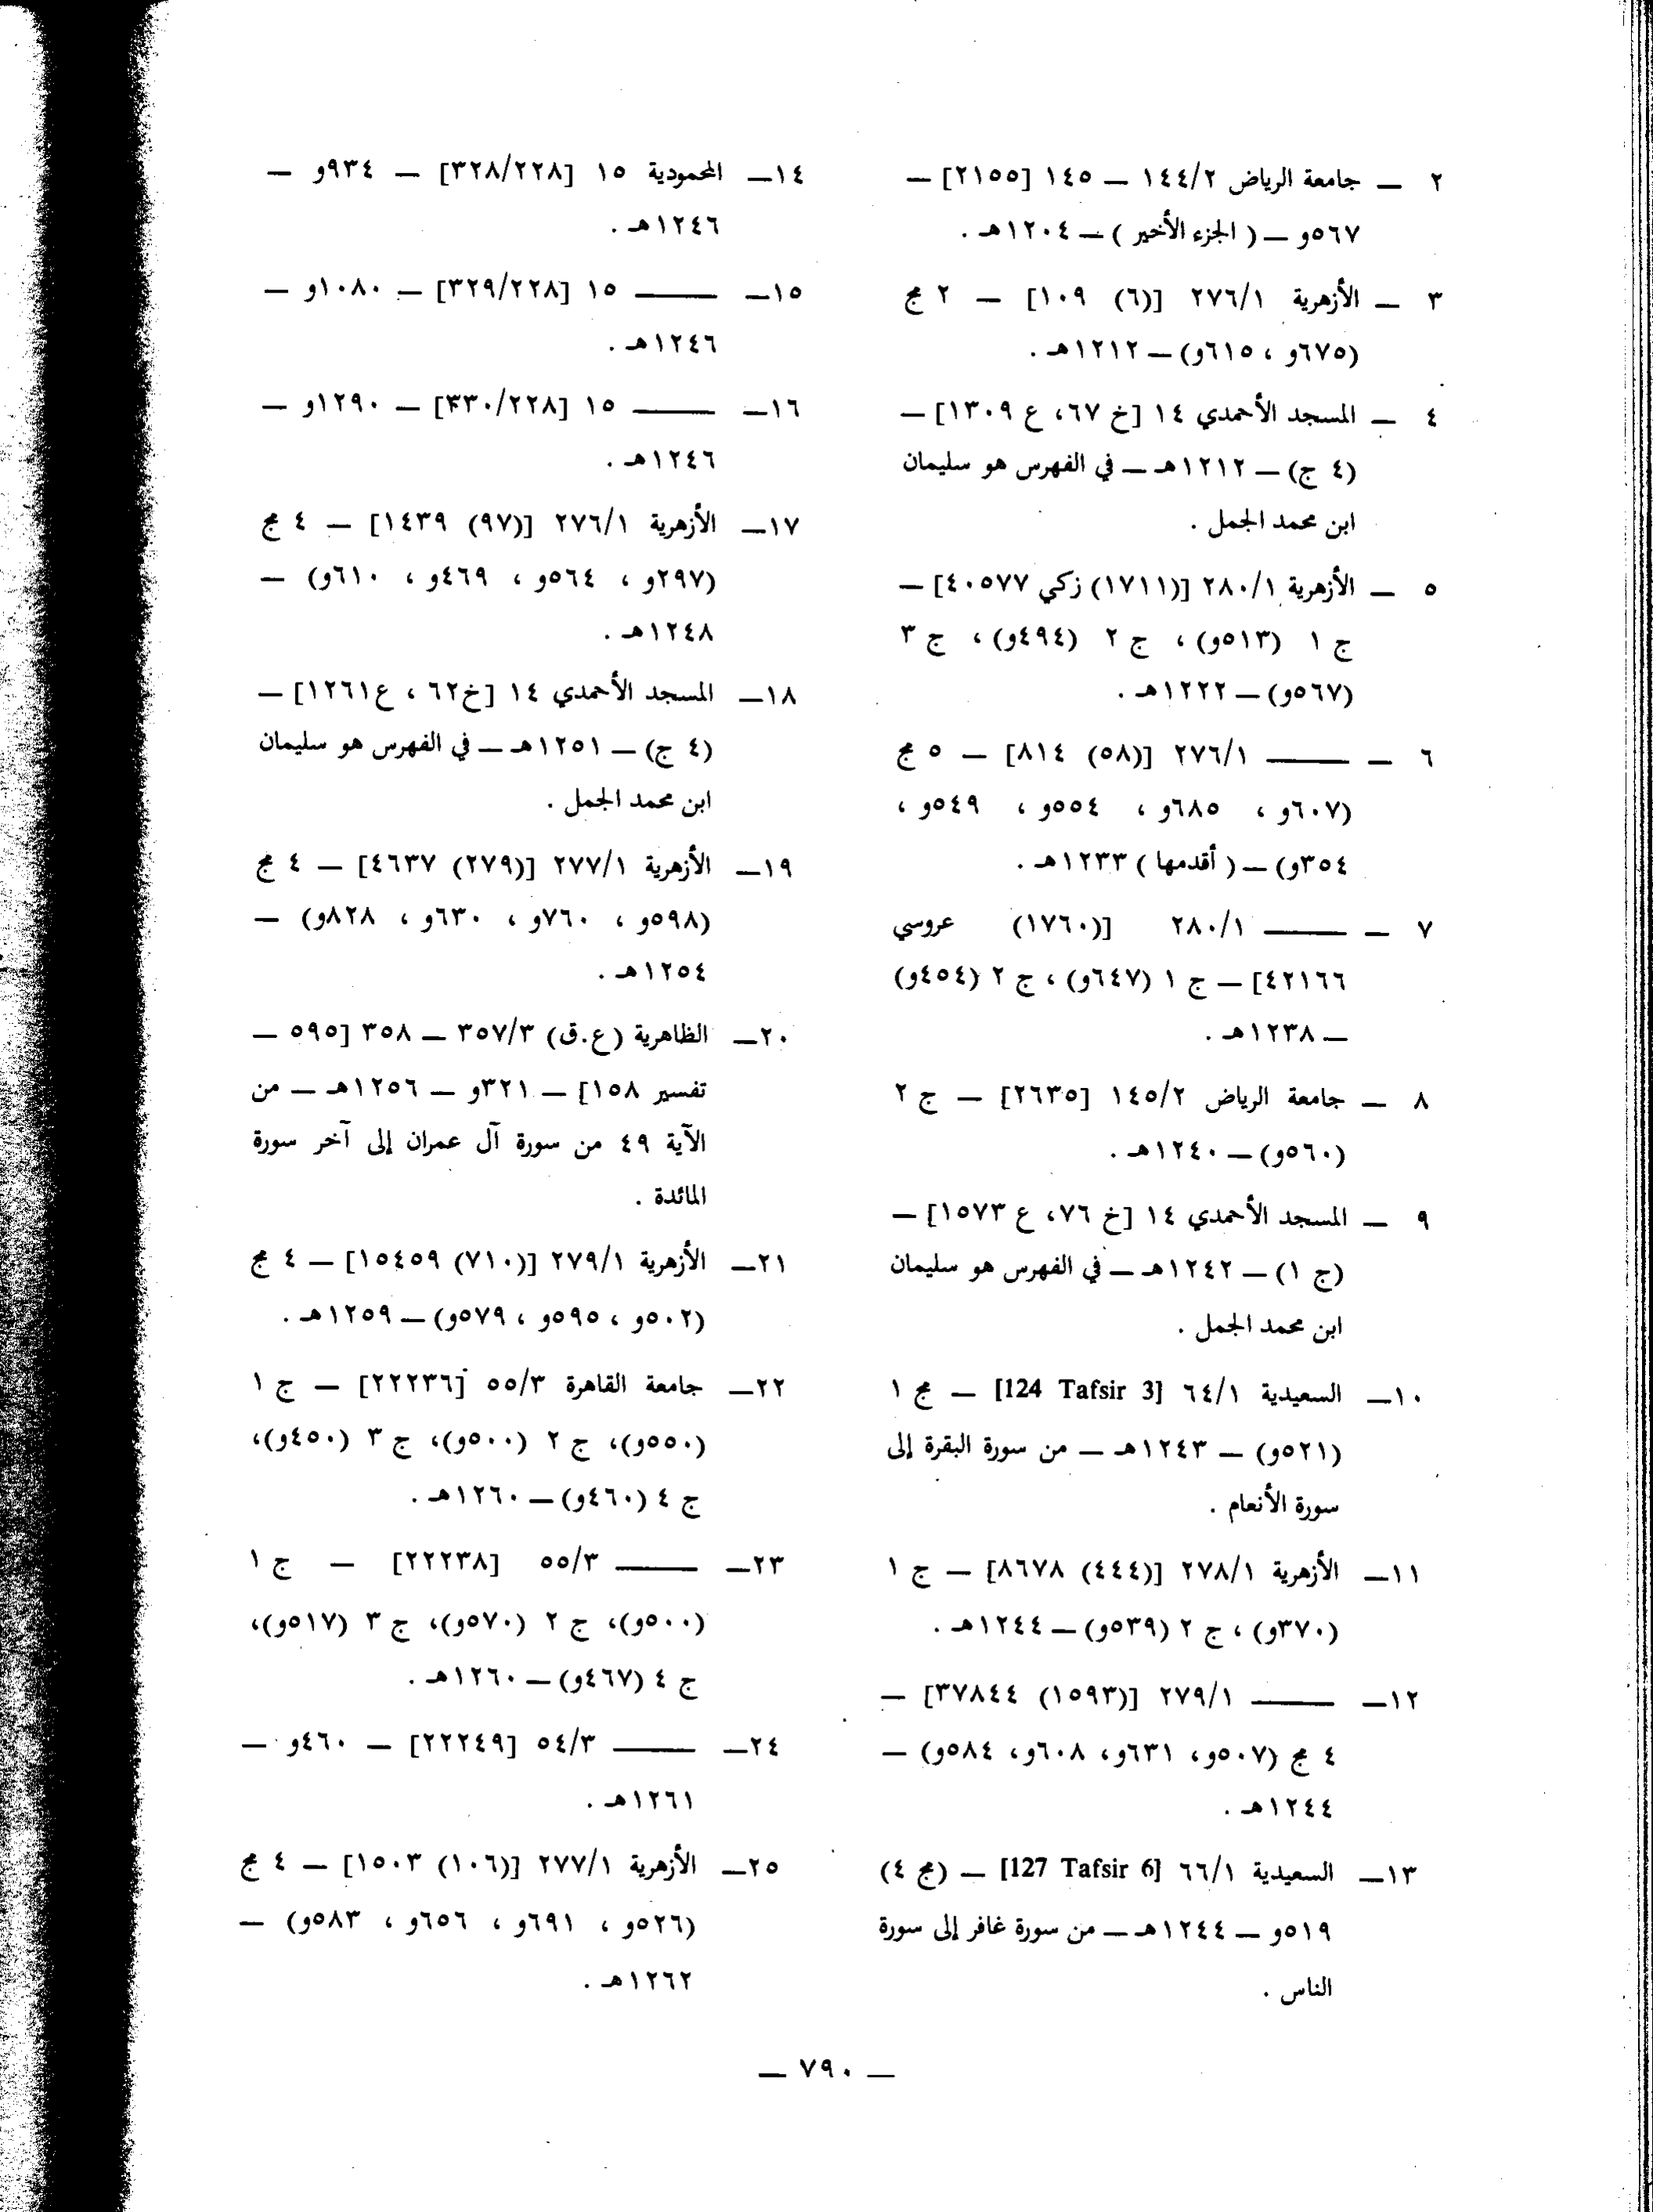 ٢ — جامعة الرياض ١٤٤/٢ — ١٤٥ [٢١٥٥] —
٥٦٧و — ( الجزء الأخير ) — ١٢٠٤هـ .
٣ — الأزهرية ٢٧٦/١ [(٦) ١٠٩] — ٢ مج
(٦٧٥و ، ٦١٥و) — ١٢١٢هـ .
٤ — المسجد الأحمدي ١٤ [خ ٦٧، ع ١٣٠٩] —
(٤ ج) — ١٢١٢هـ — في الفهرس هو سليمان
ابن محمد الجمل .
٥ — الأزهرية ٢٨٠/١ [(١٧١١) زكي ٤٠٥٧٧] —
ج ١ (٥١٣و) ، ج ٢ (٤٩٤و) ، ج ٣
(٥٦٧و) — ١٢٢٢هـ .
٦ — ——— ٢٧٦/١ [(٥٨) ٨١٤] — ٥ مج
(٦٠٧و ، ٦٨٥و ، ٥٥٤و ، ٥٤٩و ،
٣٥٤و) — ( أقدمها ) ١٢٣٣هـ .
٧ — ——— ٢٨٠/١ [(١٧٦٠) عروسي
٤٢١٦٦] — ج ١ (٦٤٧و) ، ج ٢ (٤٥٤و)
— ١٢٣٨هـ .
٨ — جامعة الرياض ١٤٥/٢ [٢٦٣٥] — ج ٢
(٥٦٠و) — ١٢٤٠هـ .
٩ — المسجد الأحمدي ١٤ [خ ٧٦، ع ١٥٧٣] —
(ج ١) — ١٢٤٢هـ — في الفهرس هو سليمان
ابن محمد الجمل .
١٠— السعيدية ٦٤/١ [124 Tafsir 3] — مج ١
(٥٢١و) — ١٢٤٣هـ — من سورة البقرة إلى
سورة الأنعام .
١١— الأزهرية ٢٧٨/١ [(٤٤٤) ٨٦٧٨] — ج ١
(٣٧٠و) ، ج ٢ (٥٣٩و) — ١٢٤٤هـ .
١٢— ——— ٢٧٩/١ [(١٥٩٣) ٣٧٨٤٤] —
٤ مج (٥٠٧و، ٦٣١و، ٦٠٨و، ٥٨٤و) —
١٢٤٤هـ .
١٣— السعيدية ٦٦/١ [127 Tafsir 6] — (مج ٤)
٥١٩و — ١٢٤٤هـ — من سورة غافر إلى سورة
الناس .
١٤— المحمودية ١٥ [٣٢٨/٢٢٨] — ٩٣٤و —
١٢٤٦هـ .
١٥— ——— ١٥ [٣٢٩/٢٢٨] — ١٠٨٠و —
١٢٤٦هـ .
١٦— ——— ١٥ [٣٣٠/٢٢٨] — ١٢٩٠و —
١٢٤٦هـ .
١٧— الأزهرية ٢٧٦/١ [(٩٧) ١٤٣٩] — ٤ مج
(٢٩٧و ، ٥٦٤و ، ٤٦٩و ، ٦١٠و) —
١٢٤٨هـ .
١٨— المسجد الأحمدي ١٤ [خ٦٢ ، ع١٢٦١] —
(٤ ج) — ١٢٥١هـ — في الفهرس هو سليمان
ابن محمد الجمل .
١٩— الأزهرية ٢٧٧/١ [(٢٧٩) ٤٦٣٧] — ٤ مج
(٥٩٨و ، ٧٦٠و ، ٦٣٠و ، ٨٢٨و) —
١٢٥٤هـ .
٢٠— الظاهرية (ع.ق) ٣٥٧/٣ — ٣٥٨ [٥٩٥ —
تفسير ١٥٨] — ٣٢١و — ١٢٥٦هـ — من
الآية ٤٩ من سورة آل عمران إلى آخر سورة
المائدة .
٢١— الأزهرية ٢٧٩/١ [(٧١٠) ١٥٤٥٩] — ٤ مج
(٥٠٢و ، ٥٩٥و ، ٥٧٩و) — ١٢٥٩هـ .
٢٢— جامعة القاهرة ٥٥/٣ [٢٢٢٣٦] — ج ١
(٥٥٠و)، ج ٢ (٥٠٠و)، ج ٣ (٤٥٠و)،
ج ٤ (٤٦٠و) — ١٢٦٠هـ .
٢٣— ——— ٥٥/٣ [٢٢٢٣٨] — ج ١
(٥٠٠و)، ج ٢ (٥٧٠و)، ج ٣ (٥١٧و)،
ج ٤ (٤٦٧و) — ١٢٦٠هـ .
٢٤— ——— ٥٤/٣ [٢٢٢٤٩] — ٤٦٠و —
١٢٦١هـ .
٢٥— الأزهرية ٢٧٧/١ [(١٠٦) ١٥٠٣] — ٤ مج
(٥٢٦و ، ٦٩١و ، ٦٥٦و ، ٥٨٣و) —
١٢٦٢هـ .
— ٧٩٠ —